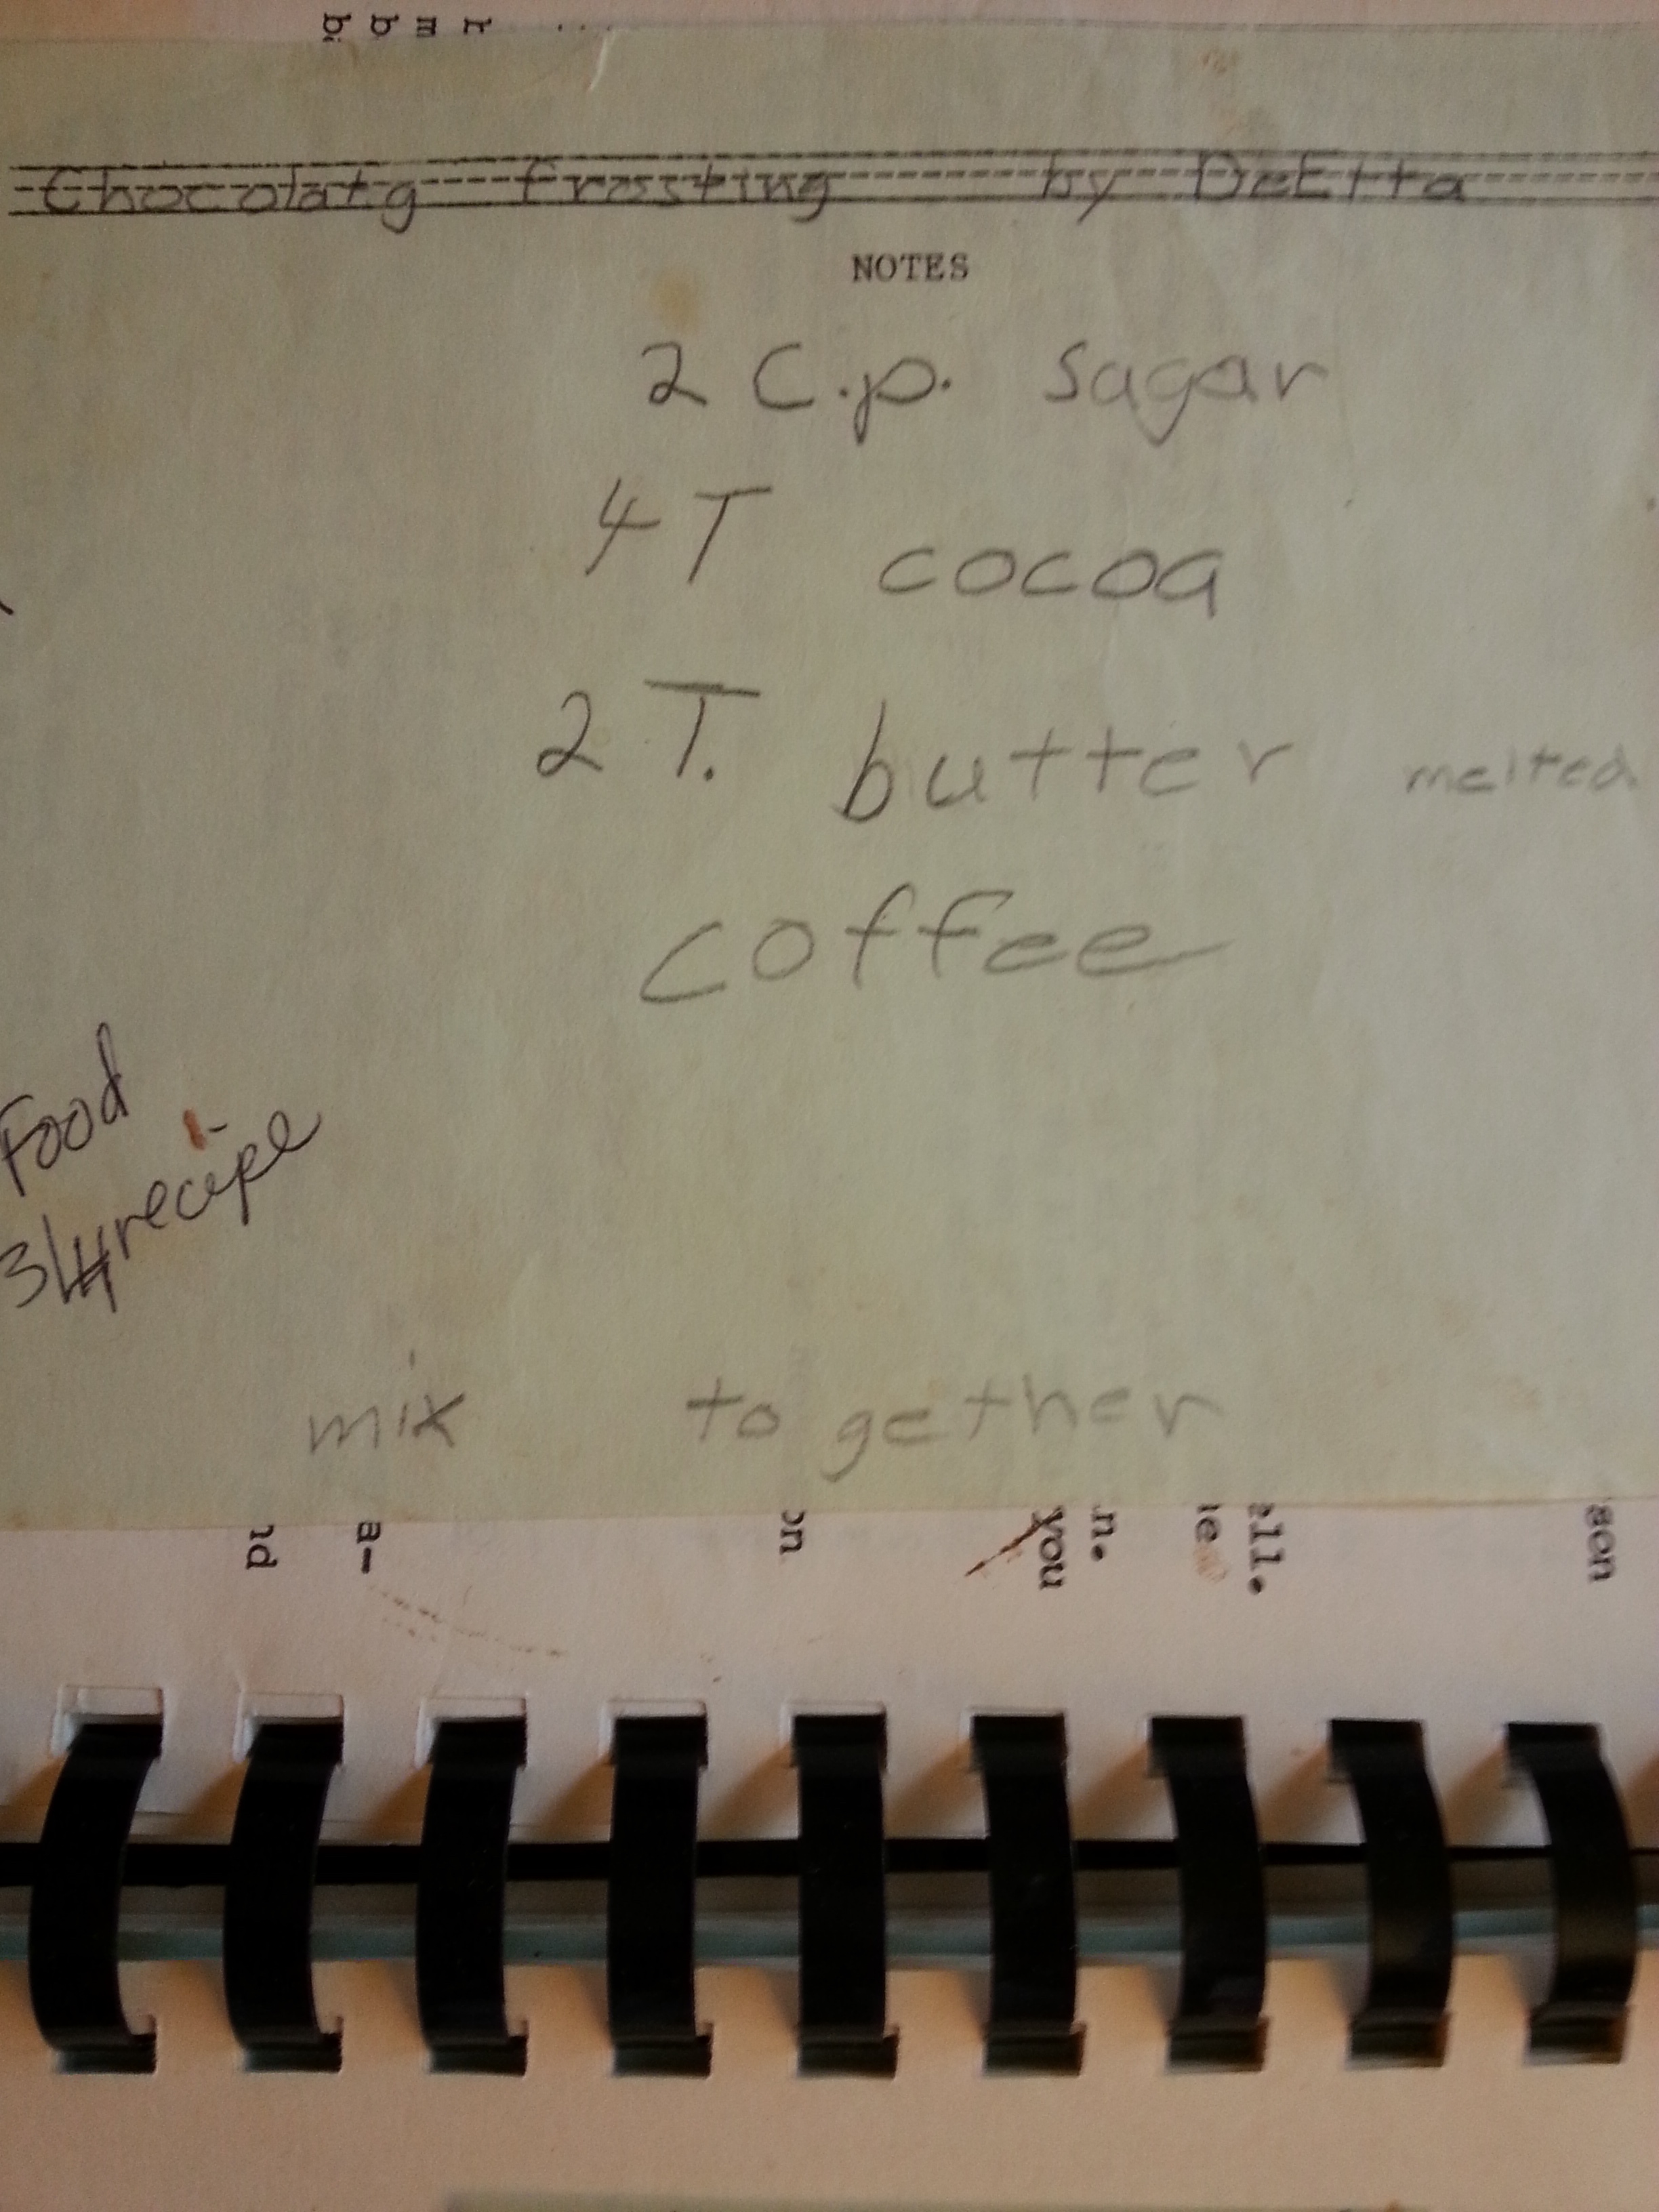 Chocolatg frosting by DeEtta
NOTES
2 C.p. sagar
4 T cocoa
2 T. butter melted
coffee
Food
3/4 recipe
mix to gether
nd
a-
on
you
n.
ll.
son